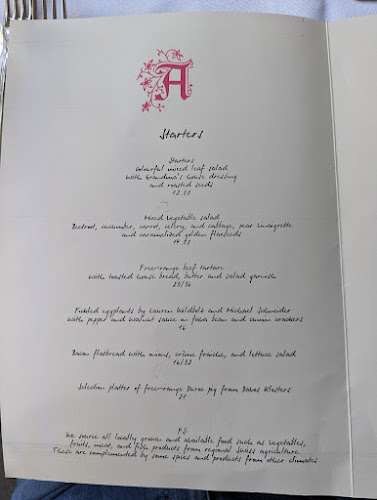 A
Starters
Starters
Colourful mixed leaf salad
with house dressing
and roasted seeds
Mixed vegetable salad
Beetroot, cucumber, carrot, celery, and cabbage, pear vinaigrette
and caramelised golden flaxseeds
14.50
Free-range beef tartare
with toasted house bread, butter and salad garnish
Pickled eggplants by Lauren Wildbolz and Michael Schneider
with pepper and walnut sauce in fava bean and cumin crackers
16
flatbread with crème fraîche, and lettuce salad
16/32
Selection platter of free-range pig from Davos Klosters
P.S.
We source all locally grown and available food such as vegetables,
fruits, meat, and fish products from regional Swiss agriculture.
These are complemented by some spices and products from other climates